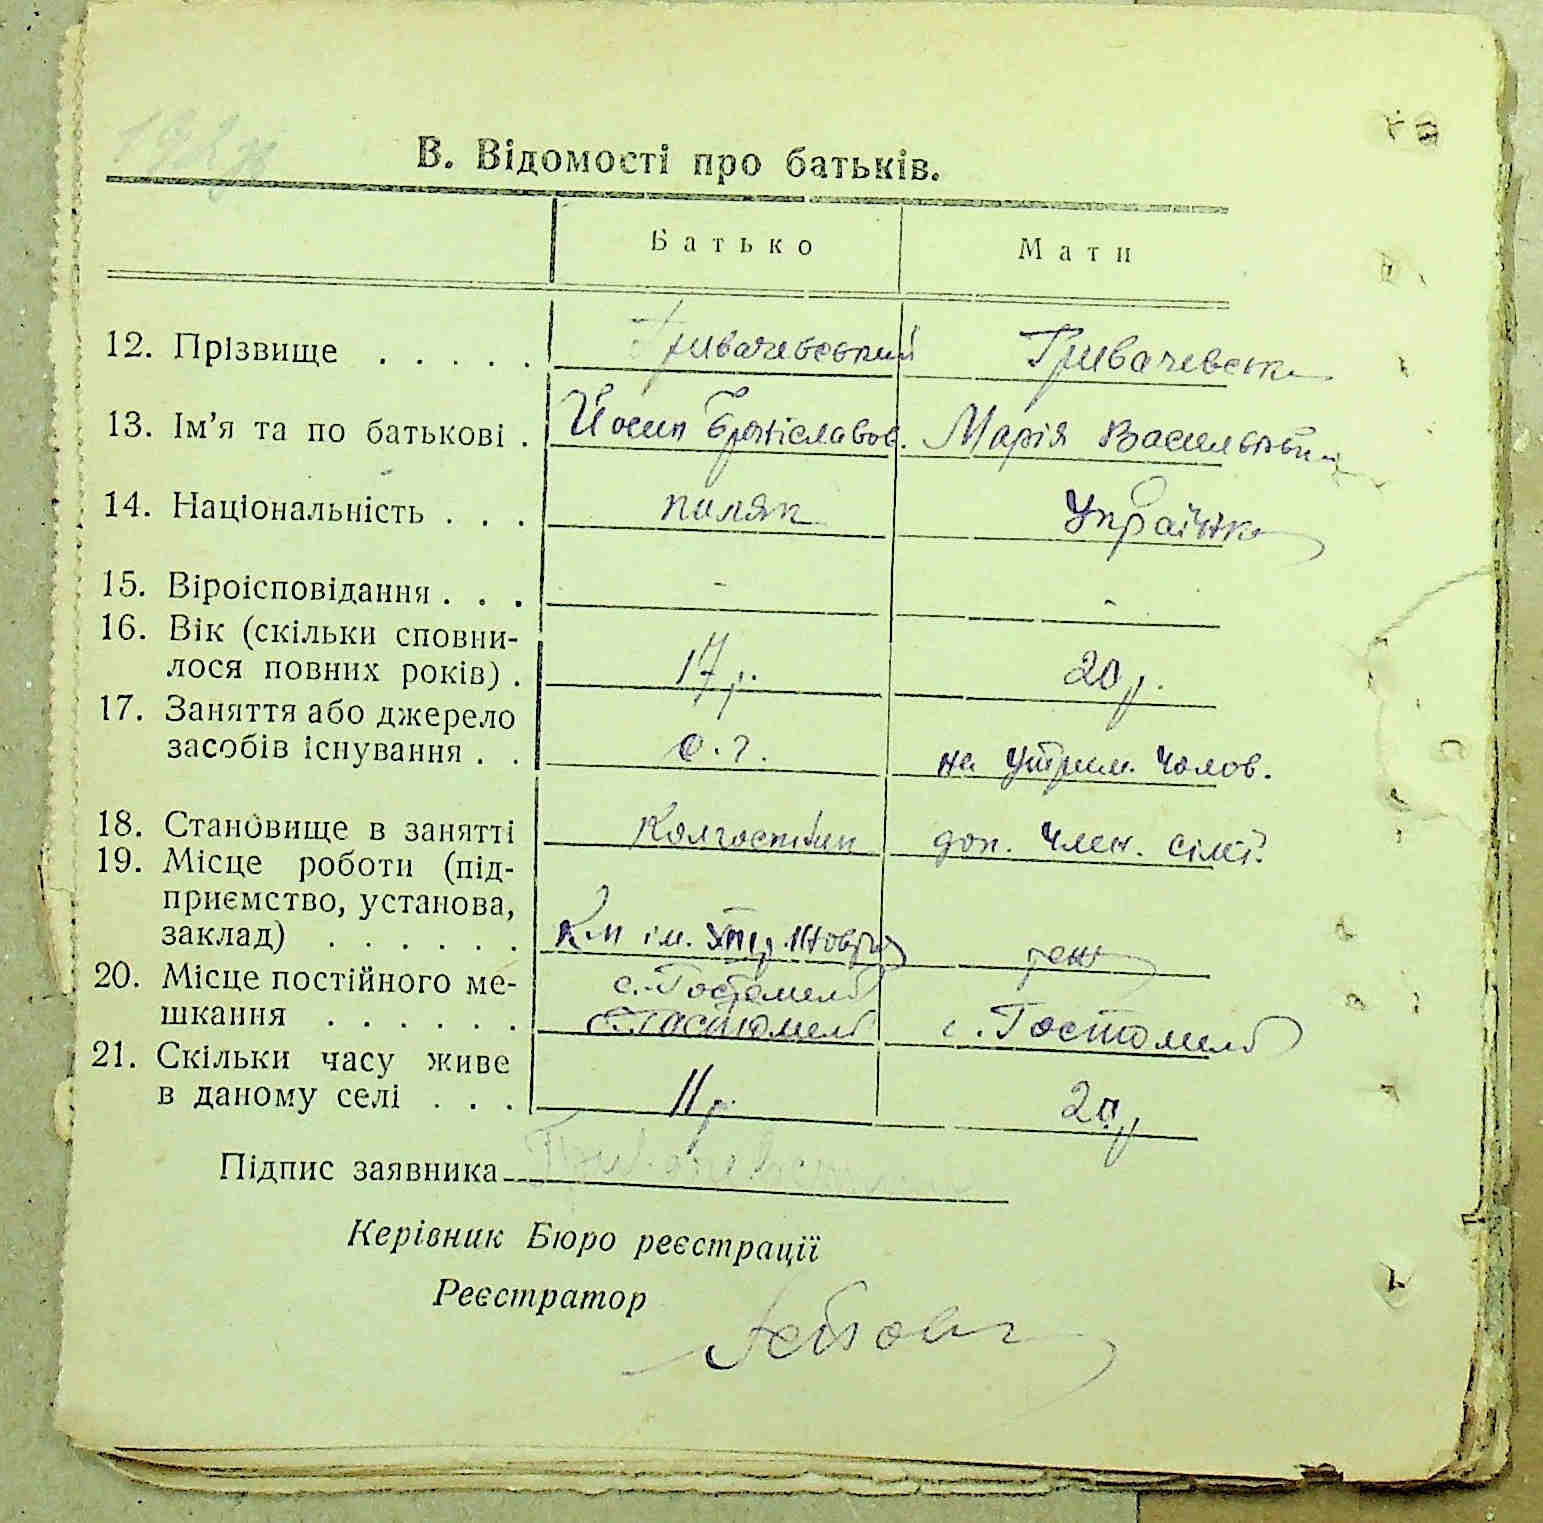 В. Відомості про батьків.
Батько Мати
12. Прізвище . . . . . Гривачевський Гривачевська
13. Ім'я та по батькові . Йосип Броніславов. Марія Васильевна
14. Національність . . . поляк Українка
15. Віроісповідання . . . - -
16. Вік (скільки сповни-
лося повних років) . 17 р. 20 р.
17. Заняття або джерело
засобів існування . . с. г. на утрим. чолов.
18. Становище в занятті Колгоспник доп. член. сім'ї.
19. Місце роботи (під-
приємство, установа,
заклад) . . . . . . К-п ім.
20. Місце постійного ме- с. Гостомель
шкання . . . . . . с. Гостомель с. Гостомель
21. Скільки часу живе
в даному селі . . . 11 р. 20 р
Підпис заявника
Керівник Бюро реєстрації
Реєстратор